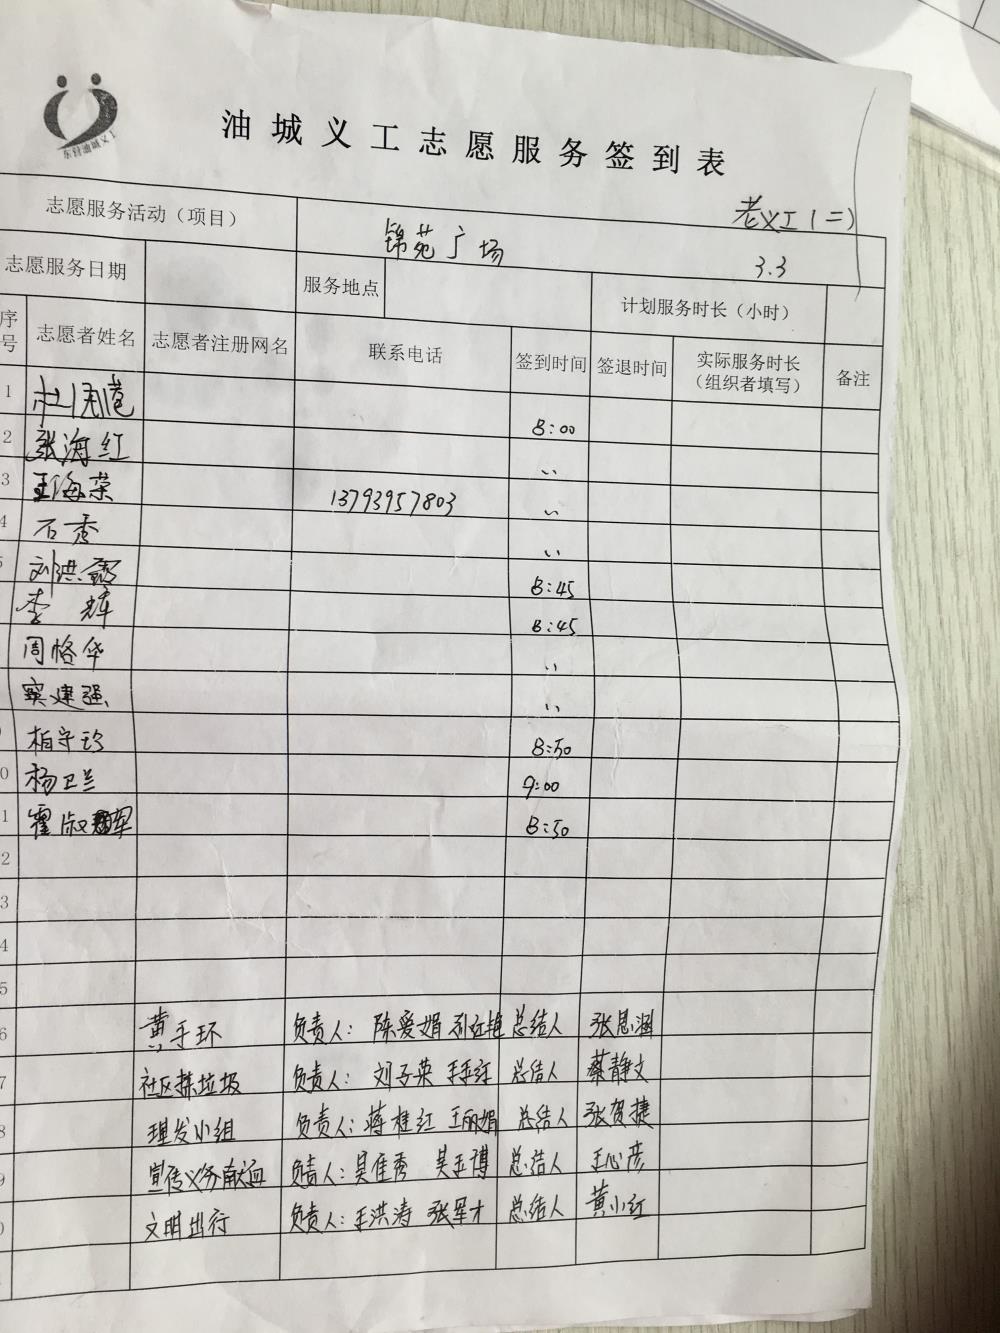 东营油城义工
油城义工志愿服务签到表
老义工(二)
志愿服务活动(项目) 锦苑广场 3.3
志愿服务日期 服务地点 计划服务时长(小时)
序号 志愿者姓名 志愿者注册网名 联系电话 签到时间 签退时间 实际服务时长(组织者填写) 备注
1 8:00
2 张海红 〃
3 王海荣 13793957803 〃
4 石秀 〃
刘洪 8:45
李辉 8:45
周恪华 〃
窦建强 〃
柏守珍 8:50
0 杨卫兰 9:00
1 霍淑军 8:50
2
3
4
5
6 黄手环 负责人: 陈爱娟 孙红艳 总结人 张思涵
7 社区捡垃圾 负责人: 刘子英 总结人 蔡静文
8 理发小组 负责人: 蒋桂红 王丽娟 总结人 张贺捷
9 宣传义务献血 负责人: 吴佳秀 吴玉博 总结人 王心彦
0 文明出行 负责人: 王洪涛 张军才 总结人 黄小红